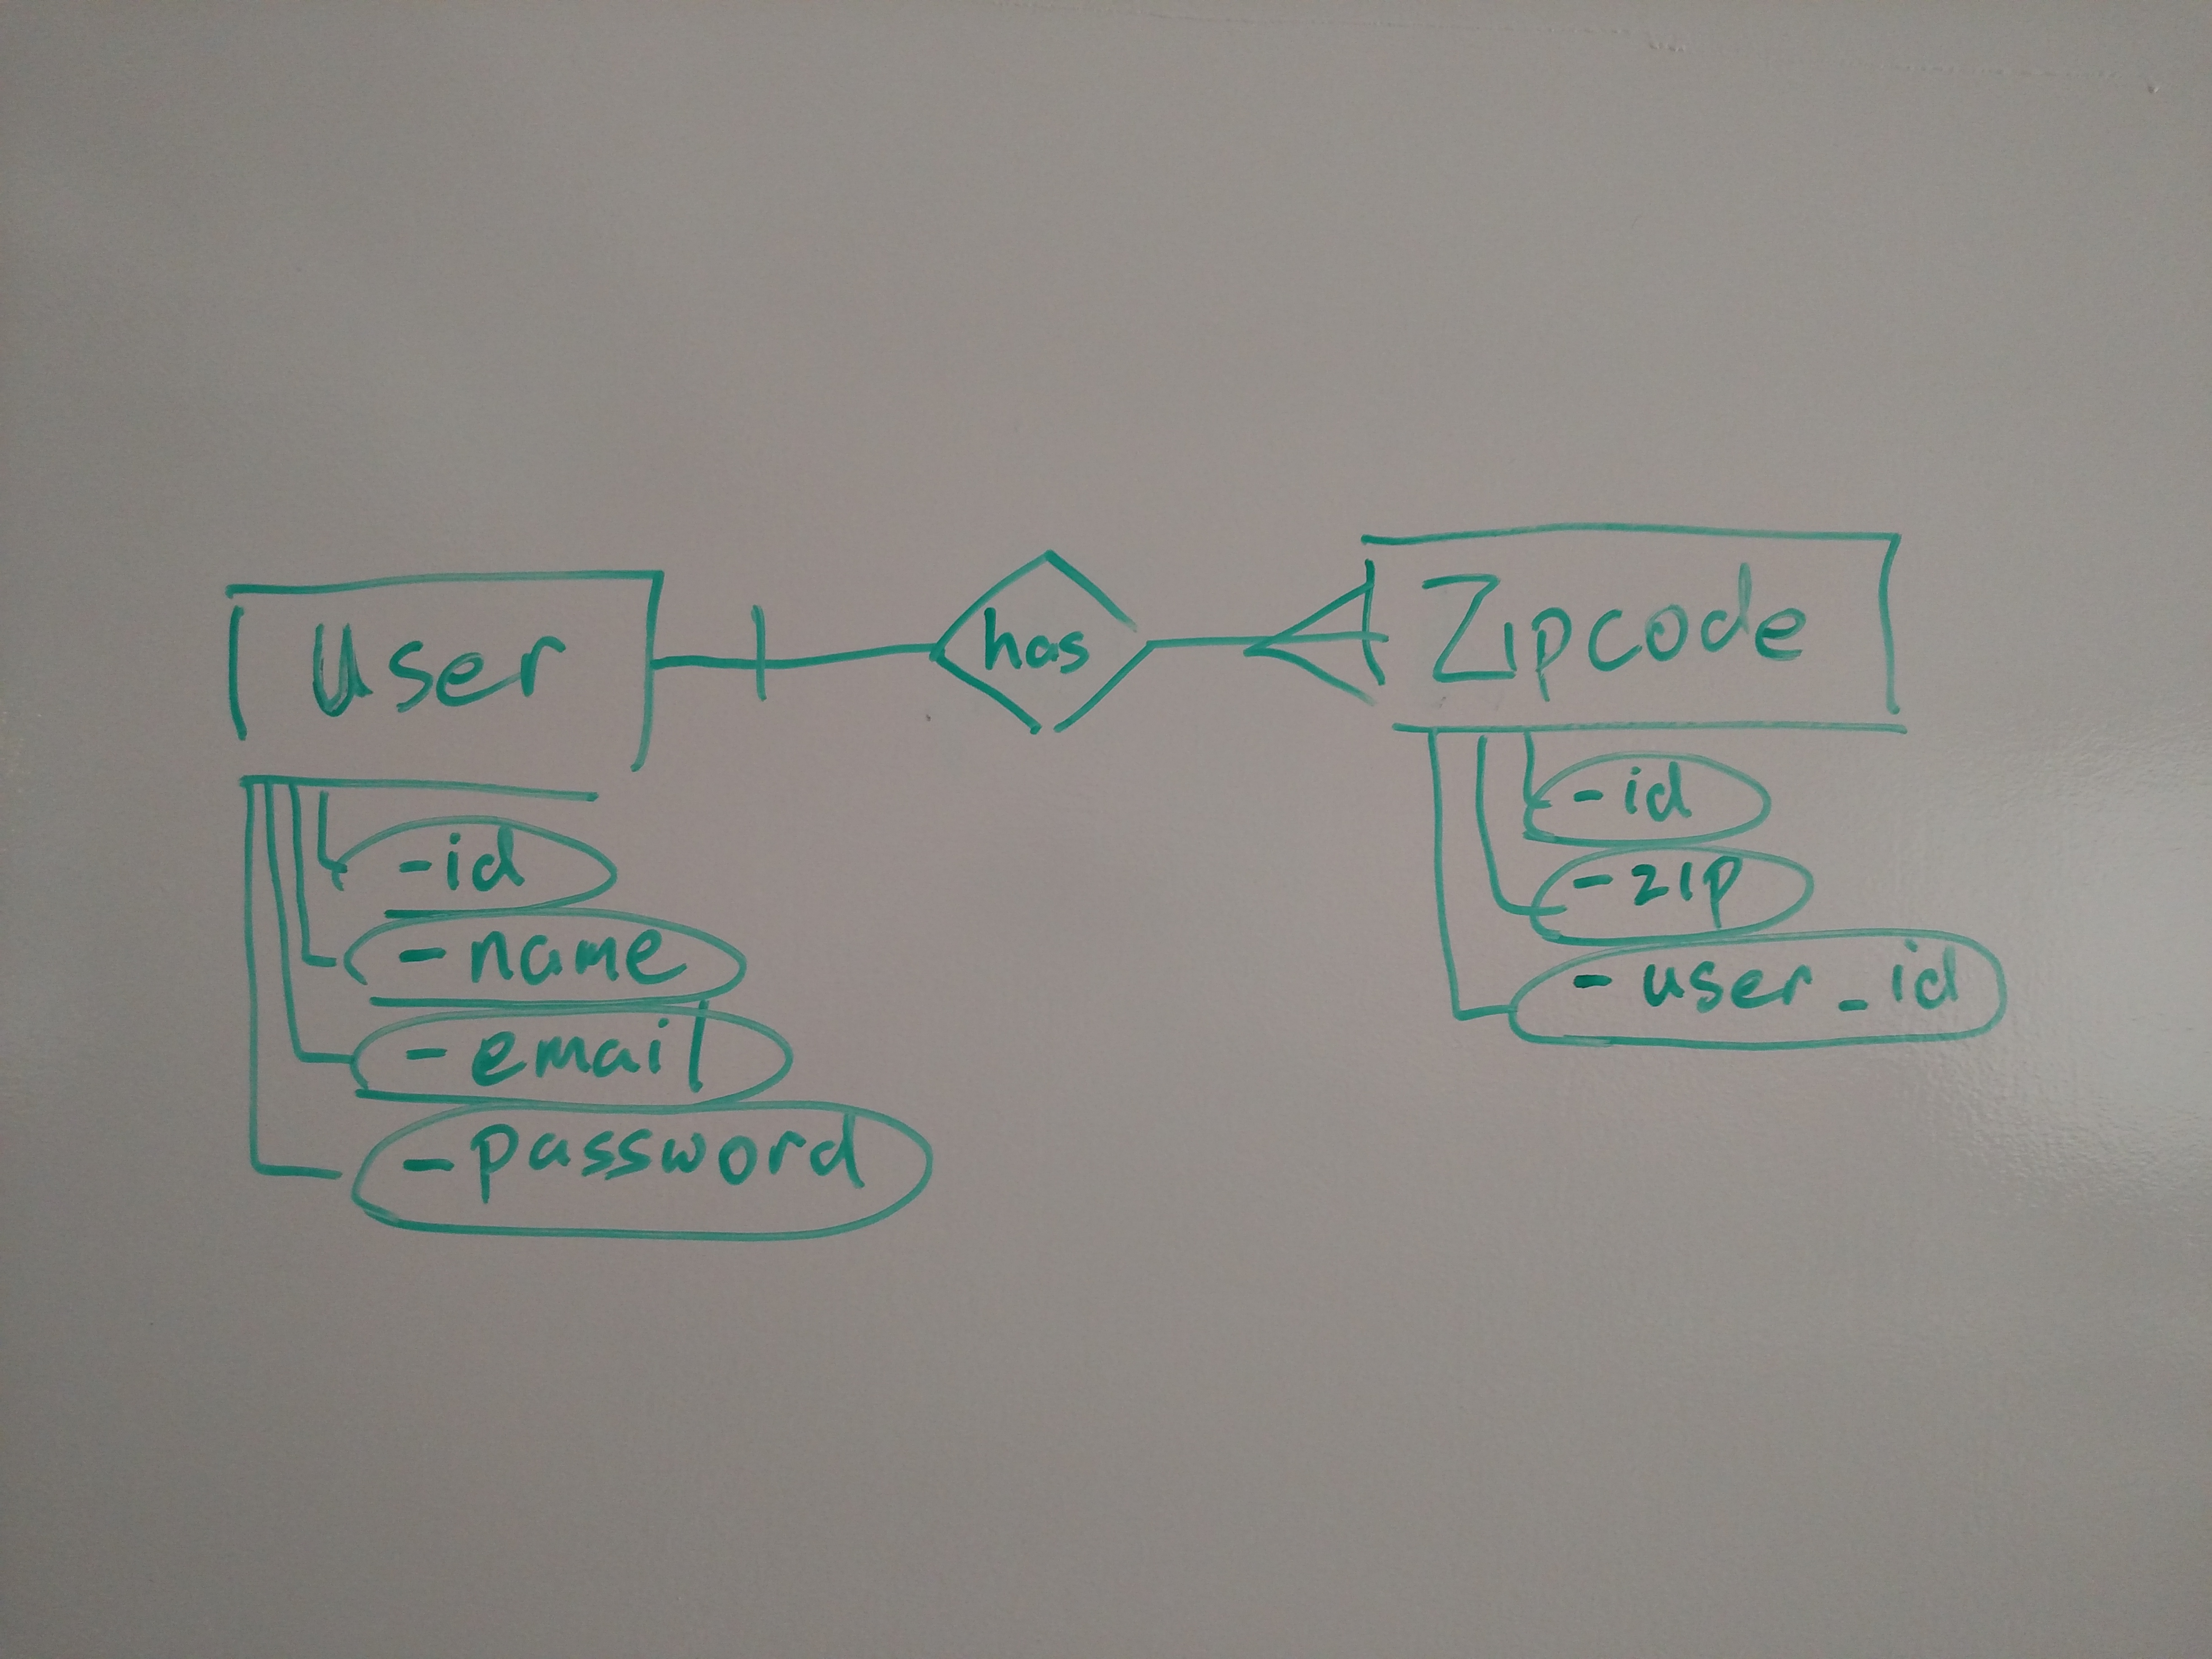 User
has
Zipcode
-id
-name
-email
-password
-id
-zip
-user_id